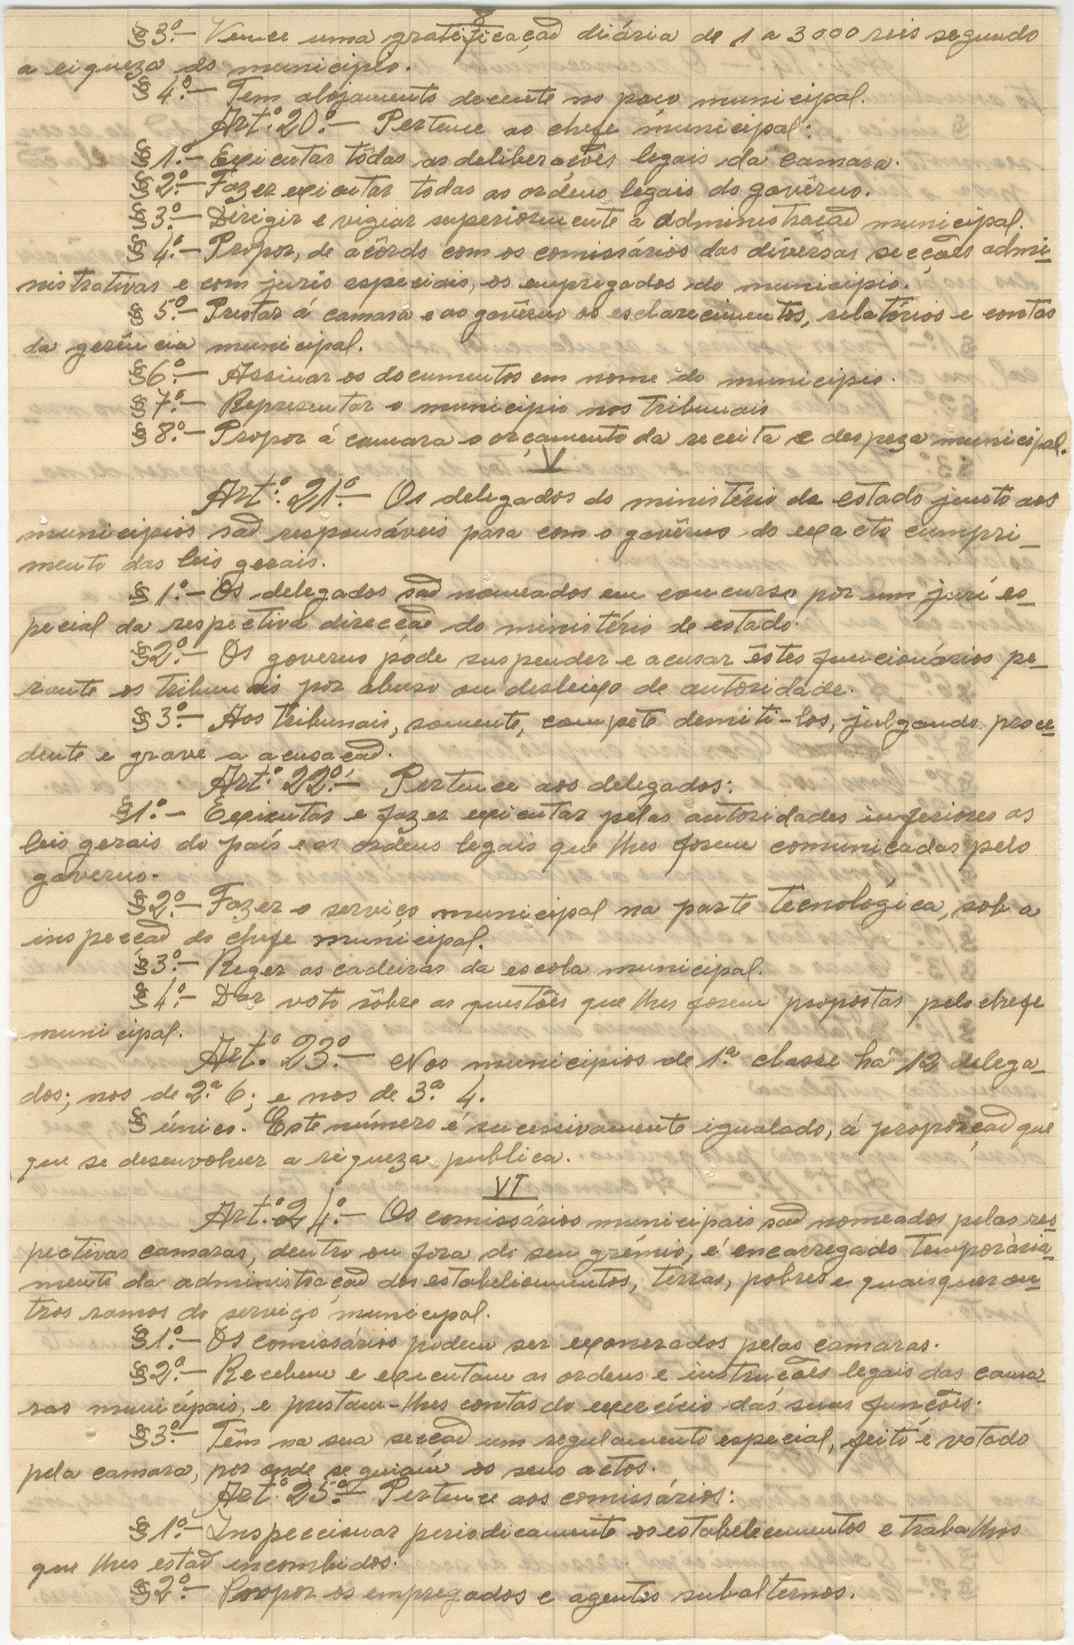 §3º.— Vence uma gratificação diária de 1 a 3000 reis segundo
a riqueza do municipio.
§4º.— Tem alojamento decente no paço municipal.
Artº. 20º.— Pertence ao chefe municipal:
§1º.— Executar tôdas as deliberações legais da camara.
§2º.— Fazer executar todas as ordens legais do govêrno.
§3º.— Dirigir e vigiar superiormente a administração municipal.
§4º.— Propor, de acôrdo com os comissários das diversas secções admi-
nistrativas e com juris especiais, os empregados do municipio.
§5º.— Prestar á camara e ao govêrno os esclarecimentos, relatórios e contas
da gerência municipal.
§6º.— Assinar os documentos em nome do municipio.
§7º.— Representar o municipio nos tribunais
§8º.— Propor á camara o orçamento da receita e despeza municipal.
V
Artº. 21º.— Os delegados do ministério de estado junto aos
municipios são responsáveis para com o govêrno do exacto cumpri-
mento das leis gerais.
§1º.— Os delegados são nomeados em concurso por um juri es-
pecial da respectiva direcção do ministério de estado.
§2º.— Os governo póde suspender e acusar êstes funcionários pe-
rante os tribunais por abuso ou desleixo de autoridade.
§3º.— Aos tribunais, somente, compete demiti-los, julgando proce-
dente e grave a acusação.
Artº. 22º.— Pertence aos delegados:
§1º.— Executar e fazer executar pelas autoridades inferiores as
leis gerais do país e as ordens legais que lhes forem comunicadas pelo
governo.
§2º.— Fazer o serviço municipal na parte tecnológica, sob a
inspecção do chefe municipal.
§3º.— Reger as cadeiras da escola municipal.
§4º.— Dar voto sôbre as questões que lhes forem propostas pelo chefe
municipal.
Artº. 23º.— Nos municipios de 1ª. classe há 12 delega-
dos; nos de 2ª. 6; e nos de 3ª. 4.
§ único. Este número é sucessivamente igualado, á proporção que
que se desenvolver a riqueza publica.
VI
Artº. 24º.— Os comissários municipais são nomeados pelas res-
pectivas camaras, dentro ou fora do seu grémio, e encarregado temporária-
mente da administração dos estabelecimentos, terras, pobres e quaisquer ou-
tros ramos do serviço municipal.
§1º.— Os comissários podem ser exonerados pelas camaras.
§2º.— Recebem e executam as ordens e instruções legais das cama-
ras municipais, e prestam-lhes contas do exercício das suas funções.
§3º.— Têm na sua secção um regulamento especial, feito e votado
pela camara, por onde se guiam os seus actos.
Artº. 25º.— Pertence aos comissários:
§1º.— Inspeccionar periodicamente os estabelecimentos e trabalhos
que lhes estão incombidos.
§2º.— Propor os empregados e agentes subalternos.